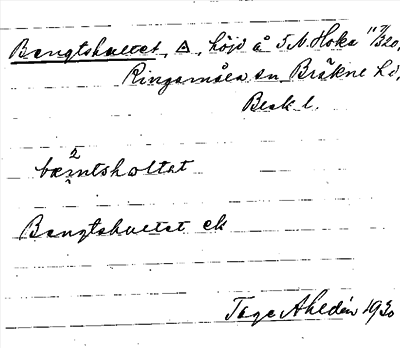 Bengtshultet, △, höjd å S N. Hoka 11⁷/320,
Ringamåla sn Bräkne hd,
Blek l.
bæ²ntshɷltət
Bengtshultet ek
Tage Ahldén 1930